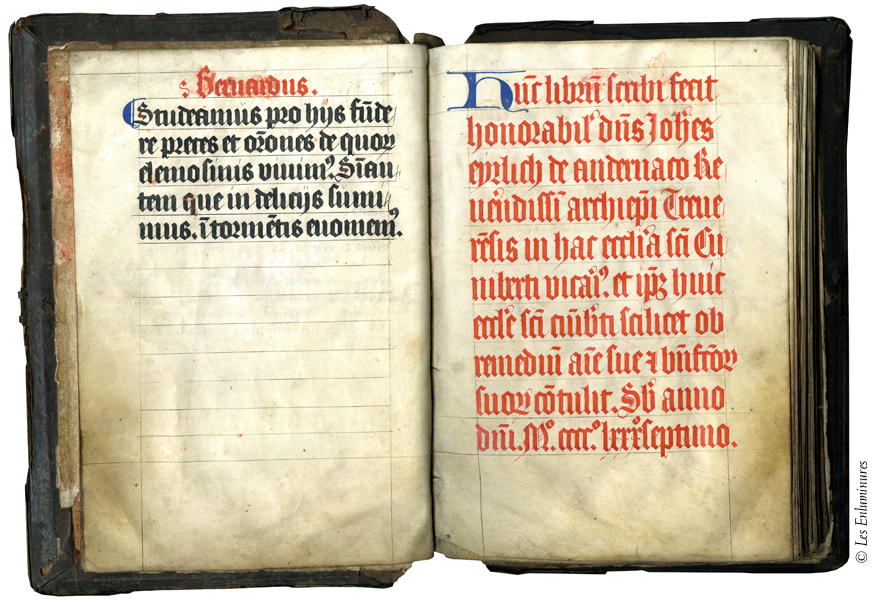 Bernardus.
Studeamus pro hijs fūde
re preces et orōnes de quoꝝ
elemosinis viuimꝰ. Si āu
tem que in delicijs sumi
mus. ī tormētis euomemꝰ.
Hūc librū scribi fecit
honorabilˢ dn̄s Joh̄es
eyrlich de andernaco Re
uēndissī archiep̄i Treue
rēsis in hac eccl̄ia sc̄i Cu
niberti vicariꝰ. et ip̄ꝫ huic
eccl̄e sc̄i cūib̄ti scilicet ob
remediū aīe sue ⁊ bn̄fc̄oꝝ
suoꝝ cōtulit. Sb̄ anno
dn̄i. Mᵒ. ccccᵒ lxxxᵒseptimo.
© Les Enluminures